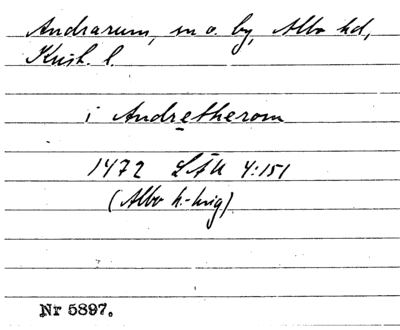 Andrarum, sn o. by, Albo hd,
Krist. l.
i Andretherom
1472 LÄU 4:151
(Albo h-krig)
Nr 5897.